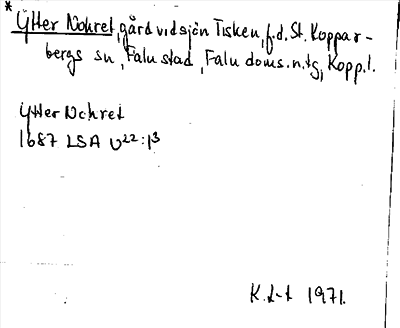 * Ytter Nohret, gård vid sjön Tisken, f.d. St. Koppar-
bergs sn, Falu stad, Falu doms.n.tg, Kopp.l.
Ytter Nohret
1687 LSA U22:13
K. L-t 1971.